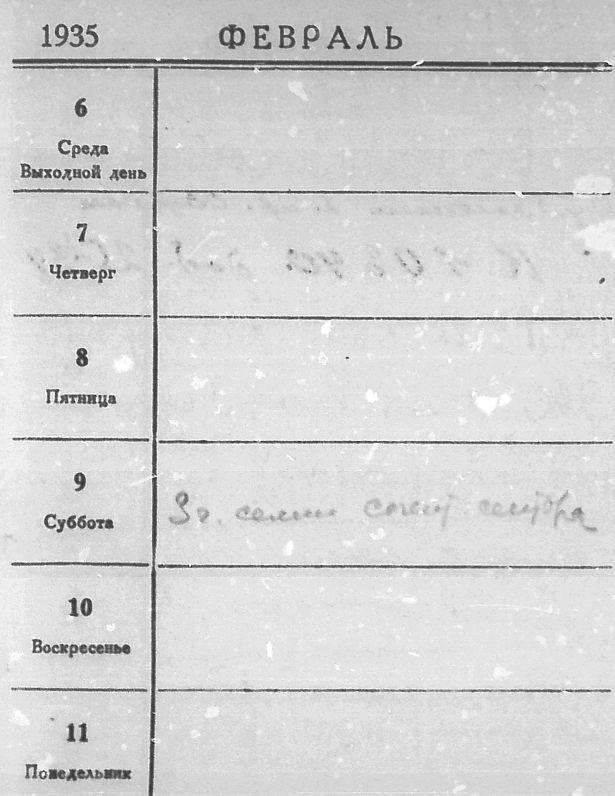 1935 ФЕВРАЛЬ
6
Среда
Выходной день
7
Четверг
8
Пятница
9
Суббота
сектора
10
Воскресенье
11
Понедельник